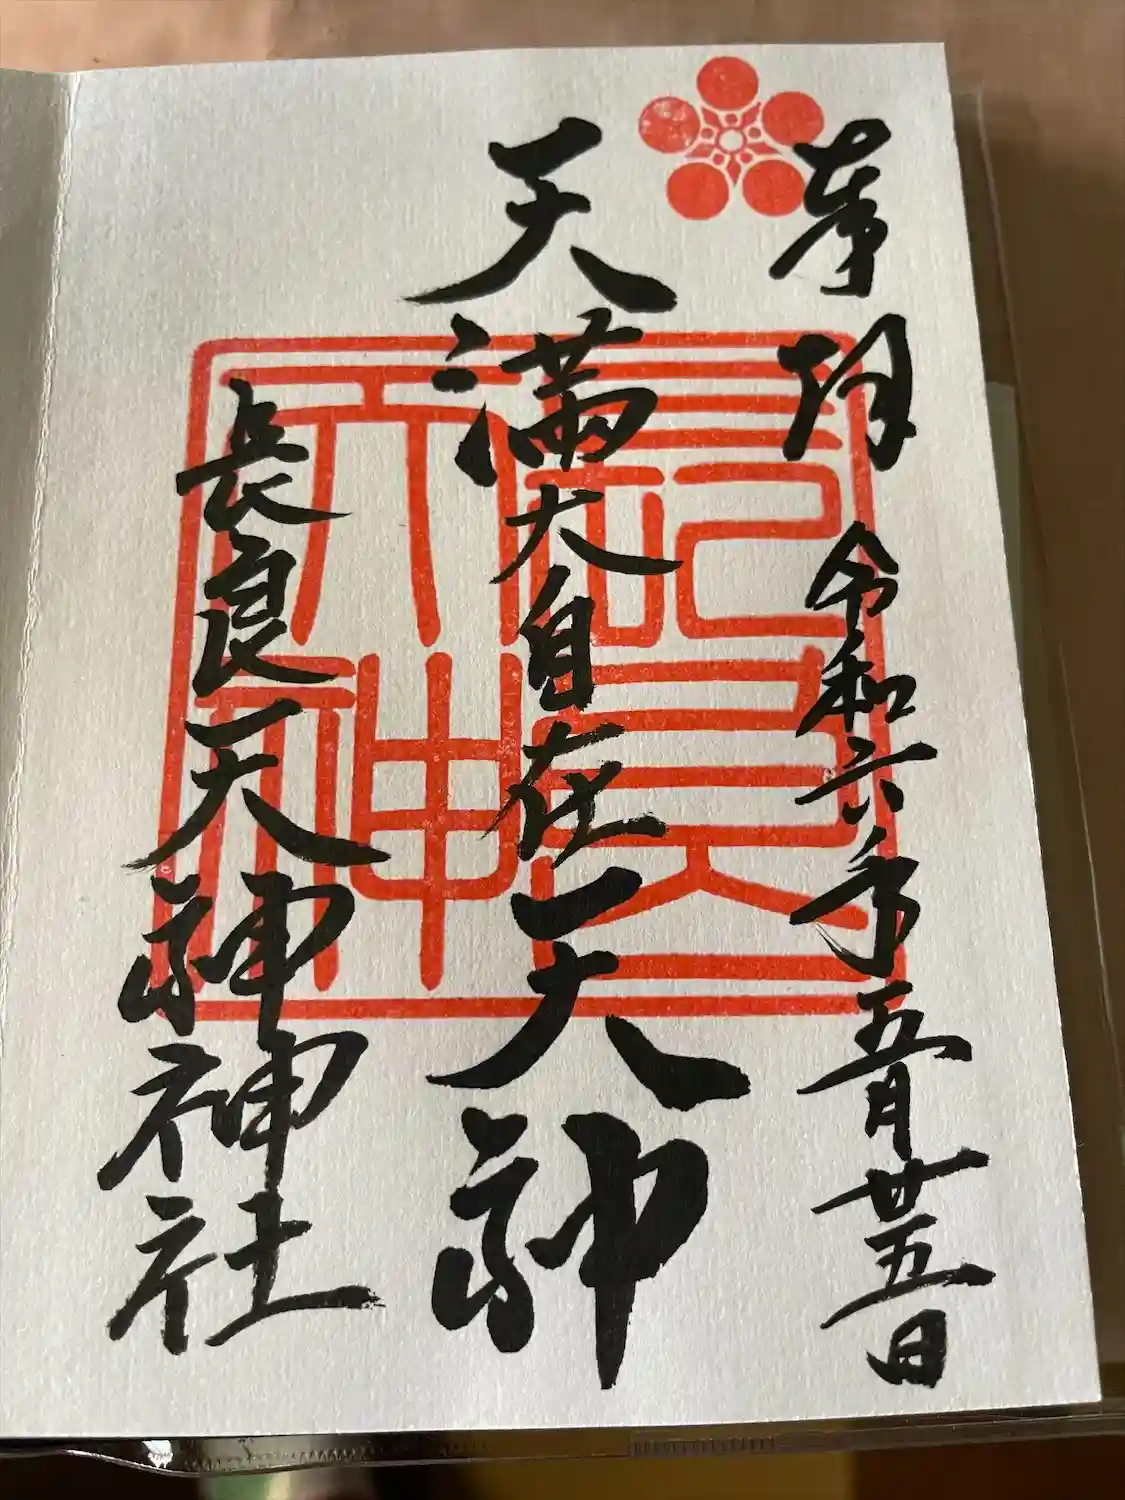 奉拝 令和六年五月廿五日
天満大自在天神
長良天神神社
長良
天神